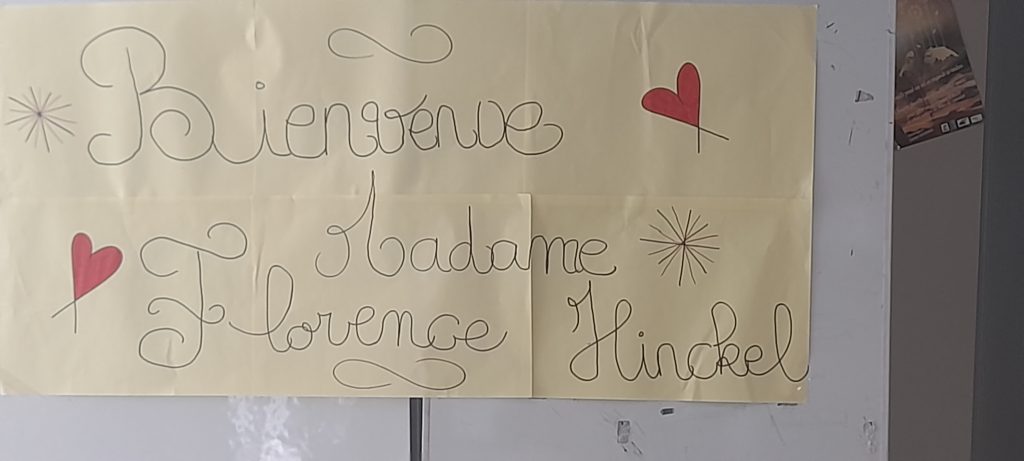 Bienvenue
Madame
Florence Hinckel